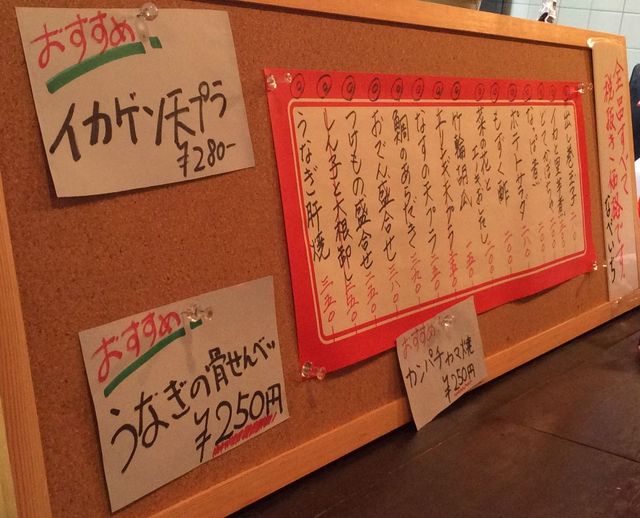 おすすめ
イカゲソ天プラ
¥280-
おすすめ
うなぎの骨せんべい
¥250円
おすすめ
カンパチカマ焼
¥250円
出し巻玉子
ポテトサラダ 一八〇
もずく酢 一〇〇
菜の花と
おひたし
竹輪胡瓜 一五〇
チーズ天プラ 一五〇
なすの天プラ 二五〇
鯛のあらだき 三八〇
おでん盛合せ 二五〇
つけもの盛合せ 二五〇
しらす子と大根卸し 二五〇
うなぎ肝焼 三五〇
全品すべて
税抜き価格です
なべいち